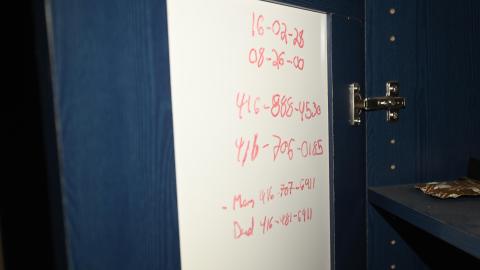 16-02-28
08-26-00
416-888-4530
416-706-0185
- Mom 416-707-6911
Dad 416-481-6911